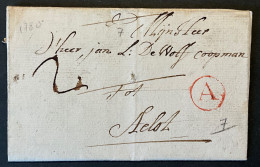 1780
7
Mijnheer
d'heer, jan L: De Wolf coopman
2
tot
Aelst
A
7